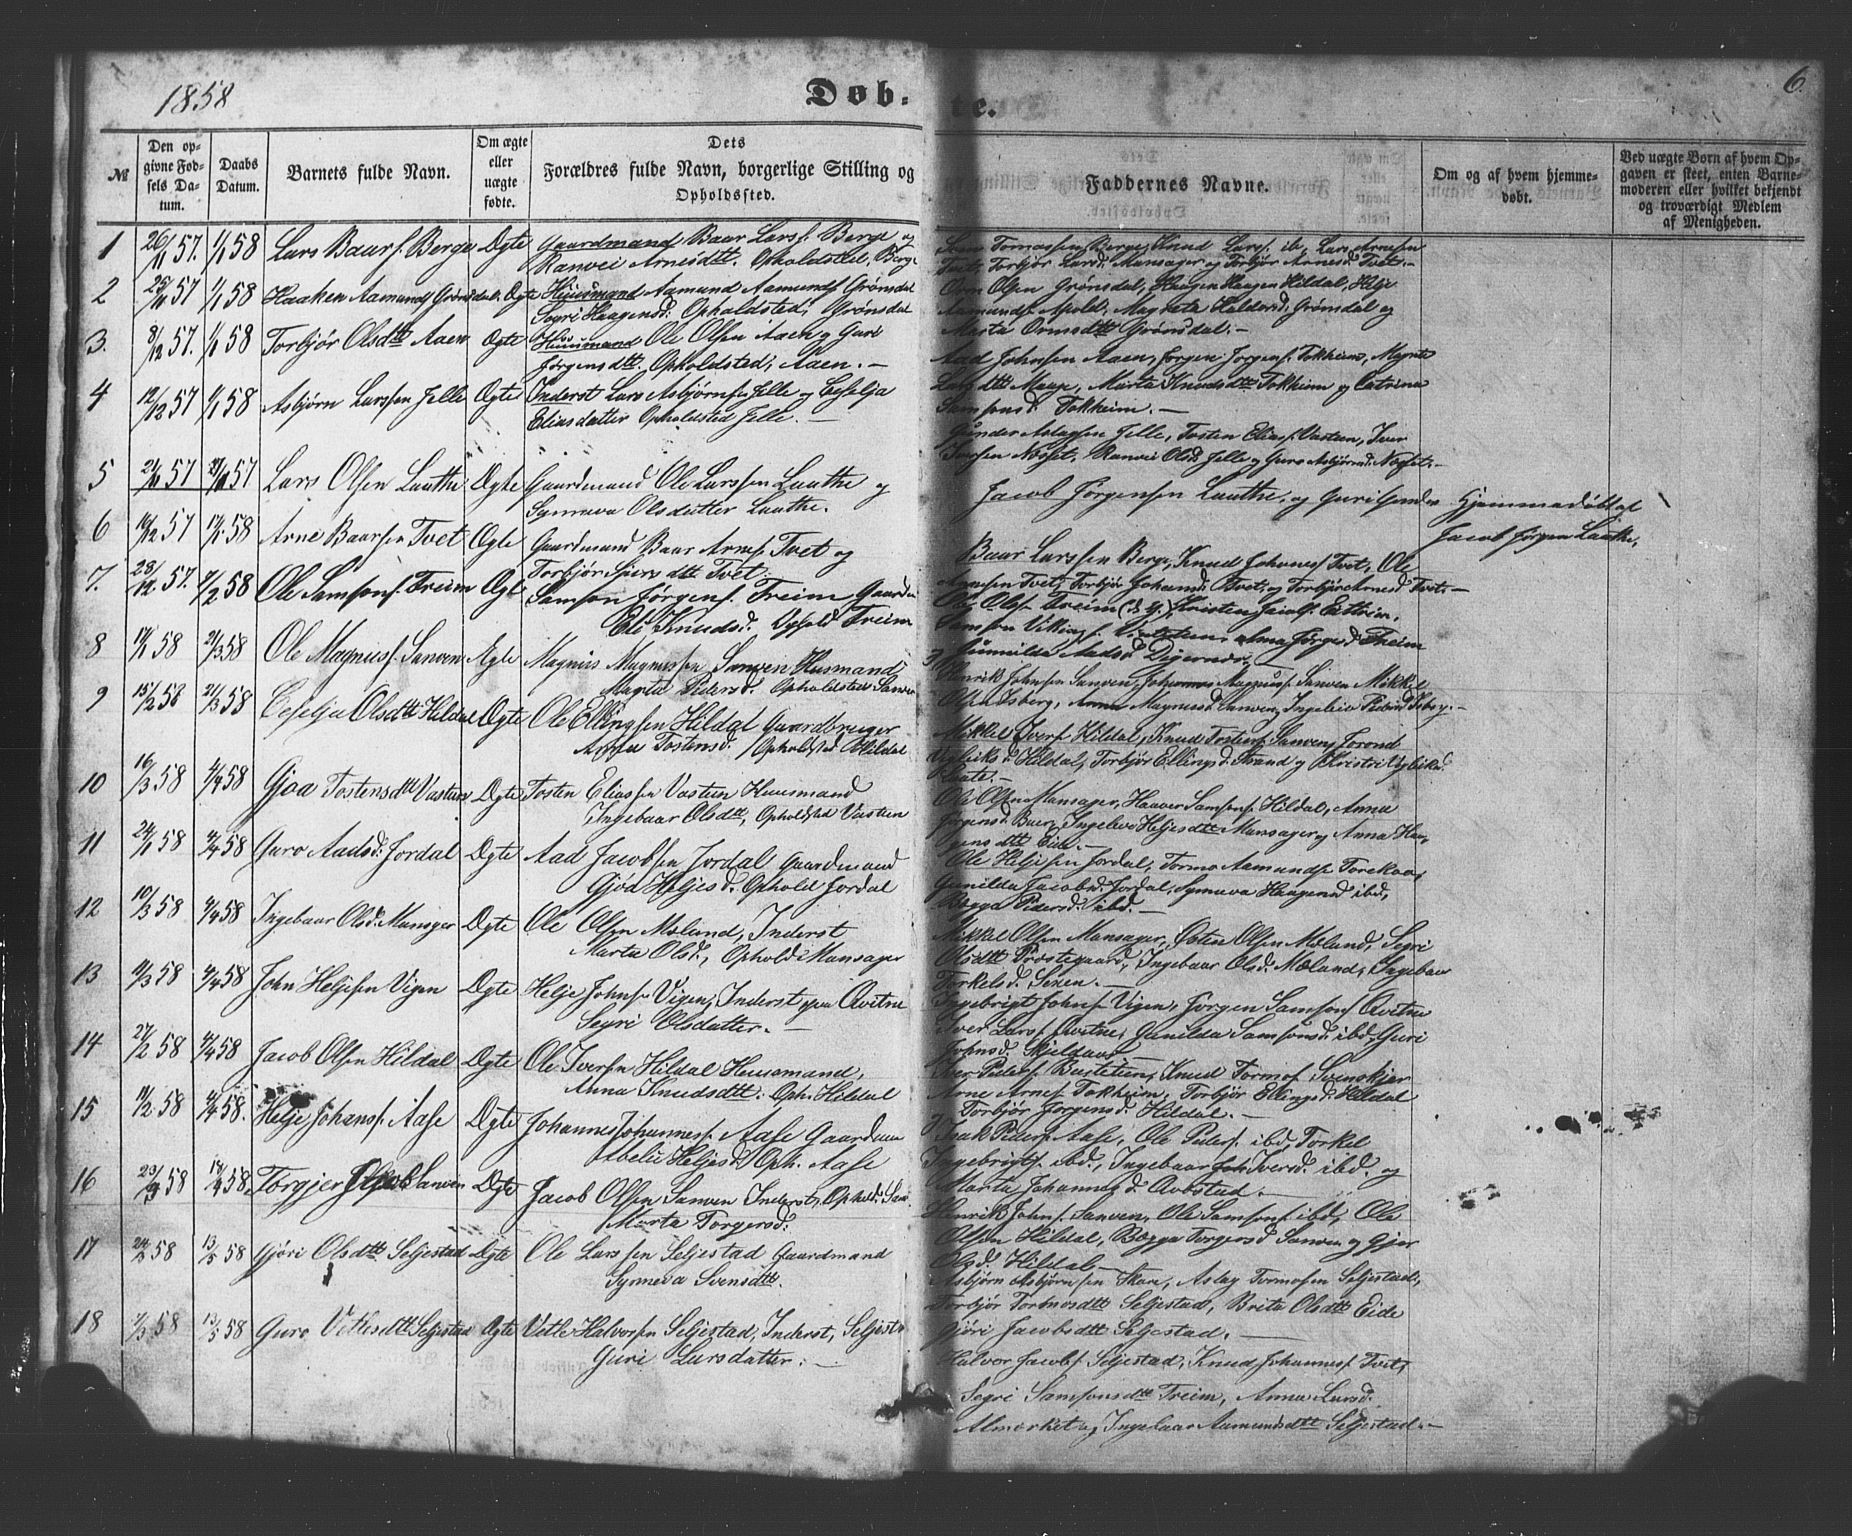 1858
Døb-
te.
6.
№
Den op-
givne Fød-
sels Da-
tum.
Daabs
Datum.
Barnets fulde Navn.
Om ægte
eller
uægte
fødte.
Dets
Forældres fulde Navn, borgerlige Stilling og
Opholdssted.
Faddernes Navne.
Om og af hvem hjemme-
døbt.
Ved uægte Børn af hvem Op-
gaven er skeet, enten Barne-
moderen eller hvilket bekjendt
og troværdigt Medlem
af Menigheden.
1 26/11 57. 1/1 58 Lars Baars. Berge Ægte Gaardmand Baar Larss. Berge og
Ranvei Arnesdtt. Opholdsted, Berge
Tormossen Berge, Knud Larss. ib, Lars Arnesen
Tvet, Torbjør Larsd. Mansager og Torbjør Arnesd. Tvet.-
2 25/11 57 1/1 58 Haaken Aamunds Grønsdal. Ægte Huusmand Aamund Aamunds Grønsdal
Sygri Haagensd. Opholdsted, Grønsdal
Orm Olsen Grønsdal, Haagen Haagen Hildal, Helje
Aamunds. Apold, Magreta Haldorsd. Grønsdal og
Marta Ormsdtt Grønsdal.-
3. 8/12 57. 1/1 58 Torbjør Olsdtt Aaen Ægte Huusmand Ole Olsen Aaen og Guri
Jørgensdtt. Opholdsted, Aaen.-
Aad Johnsen Aaen, Jørgen Jørgens. Tokheim, Magrete
Larsdtt Mauge, Marta Knudsdtt Tokheim og Catrina
Samsonsd. Tokheim.-
4 12/12 57 1/1 58 Asbjørn Larssen Jelle Ægte Inderst Lars Asbjørns. Jelle og Ceselja
Eliasdatter Opholdsted Jelle.-
Gunder Aslagsen Jelle, Tosten Eliass. Vastun, Iver
Iversen Nøset. Ranvei Olsd. Jelle og Guro Asbjørnsd. Nøset.-
5 21/11 57 Lars Olsen Lauthe Ægte Gaardmand Ole Larssen Lauthe og
Synneva Olsdatter Lauthe.
Jacob Jørgensen Lauthe, og Guri
Hjemmedøbt af
Jacob Jørgen Lauthe,
6 10/12 57 17/1 58 Arne Baarsen Tvet Ægte Gaardmand Baar Arnes. Tvet og
Torbjør dtt Tvet.
Baar Larssen Berge, Knud Johanness. Tvet, Ole
Arnesen Tvet, Torbjør Johannsd. Tvet, og Torbjør Arnesd Tvet.-
7. 23/12 57. 7/2 58 Ole Samsons. Freim Ægt Samson Jørgens. Freim Gaardm
Knudsd. Ophold Freim
Ole Olss. Freim Kristen Jacobs.
Samson Vikings. Anna Jørgesd. Freim
Gunnilda Aadsd. Digernes.-
8 17/1 58 21/3 58 Ole Magnuss. Sanven Ægte Magnus Magnussen Sanven Husmand
Magta Pedersd. Opholdsted Sanven
Henrik Johnsen Sanven, Johannes Magnuss Sanven Mikkel
Olsen Isberg, Anna Magnusd. Sanven, Ingeleiv
9 15/2 58 21/3 58 Ceselja Olsdtt Hildal Ægte Ole Ellingsen Hildal Gaardbruger
Anna Tostensd. Opholdsted Hildal
Mikkel Ivers. Hildal, Knud Tostens. Sanven, Torond
Vigleiksd. Hildal, Torbjør Ellingsd. Strand og Kristi Vigleiksd.
Laute.-
10 16/3 58 4/4 58 Gjoa Tostensdtt Vastun Ægte Tosten Eliassen Vastun Huusmand
Ingebaar Olsdtt, Opholdsted Vastun
Ole Olsen Mansager, Haaver Samsons. Hildal, Anna
Jørgensd. Buer, Ingeleiv Heljesdtt Mansager og Anna Haa-
gensdtt Eide.-
11 24/1 58 4/4 58 Guro Aadsd. Jordal Ægte Aad Jacobsen Jordal Gaardmand
Gjøa Heljesd. Ophold Jordal
Ole Heljesen Jordal, Tormo Aamunds
Gunilda Jacobsd. Jordal, Synneva Haagensd. ibd,
Bægga Pedersd. ibd.-
12 10/3 58 4/4 58 Ingebaar Olsd. Mansager Ægte Ole Olsen Mæland, Inderst
Marta Olsd., Ophold Mansager
Mikkel Olsen Mansager, Østen Olsen Mæland, Segri
Olsdtt Prostegaard, Ingebaar Olsd. Mæland, Ingebaar
Torkelsd. Sexen.-
13 11/3 58 4/4 58 John Heljesen Vigen Ægte Helje Johns. Vigen, Inderst paa Qvitne
Segri Olsdatter.-
Ingebrigt Johns. Vigen, Jørgen Samsons Qvitne
Iver Larss. Qvitne, Gunilda Samsonsd. ibd, Guri
Johnsd. Skjeldaas
14 27/2 58 4/4 58 Jacob Olsen Hildal Ægte Ole Iversen Hildal Huusmand,
Anna Knudsdtt. Oph. Hildal
Iver Peders. Bustetun, Knud Tormos. Svenskjer
Arne Arnes. Tokheim, Torbjør Ellingsd. Hildal
Torbjør Jørgensd. Hildal.-
15 11/2 58 4/4 58. Helje Johans. Aase Ægte Johannes Johanness. Aase Gaardm
Abelu Heljesd. Oph. Aase
Isak Peders. Aase, Ole Peders. ibd Torkel
Ingebrigts. ibd., Ingebaar Iversd. ibd. og
Marta Johannesd. Aobstad.-
16 23/3 58 18/4 58 Torgjer Sanven Ægte Jacob Olsen Sanven Inderst, Ophold. San
Marta Torgersd.
Henrik Johns. Sanven, Ole Samsons ibd, Ole
Olsen Hildal, Bægga Torgersd Sanven og Gjer
Olsd. Hildal.-
17 58 13/5 58 Gjøri Olsdtt Seljestad Ægte Ole Larssen Seljestad Gaardmand
Synneva Svensdtt.
Asbjørn Asbjørnsen Skare, Aslag Tormosen Seljestad,
Torbjør Tormosdtt Seljestad, Brita Olsdtt Eide
Gjøri Jacobsdtt Seljestad.-
18 58 13/5 58 Guro Vetlesdtt Seljestad Ægte Vetle Halvorsen Seljestad, Inderst, Seljest
Guri Larsdatter.-
Halvor Jacobs. Seljestad, Knud Johanness. Tvet,
Segri Samsonsdtt Freim, Anna Larsd.
Almerket og Ingebaar Aamundsdtt Seljestad.-